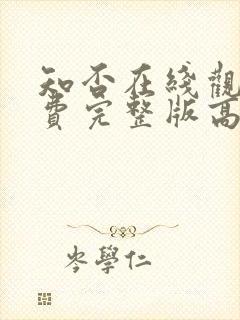 知否在线觀
費完整版高
岑學仁